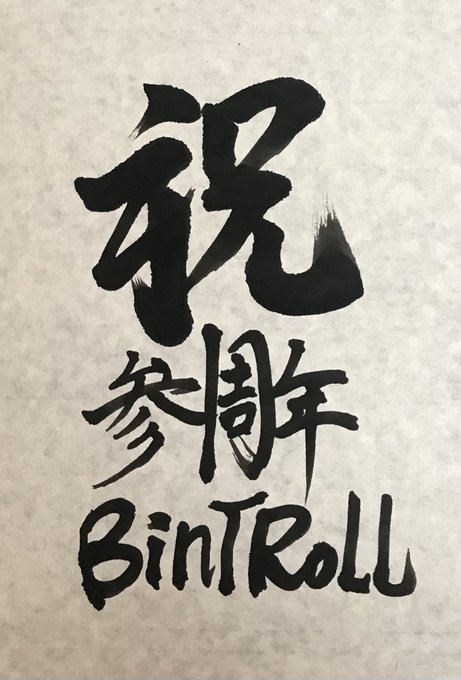 祝
参周年
BinTRoLL